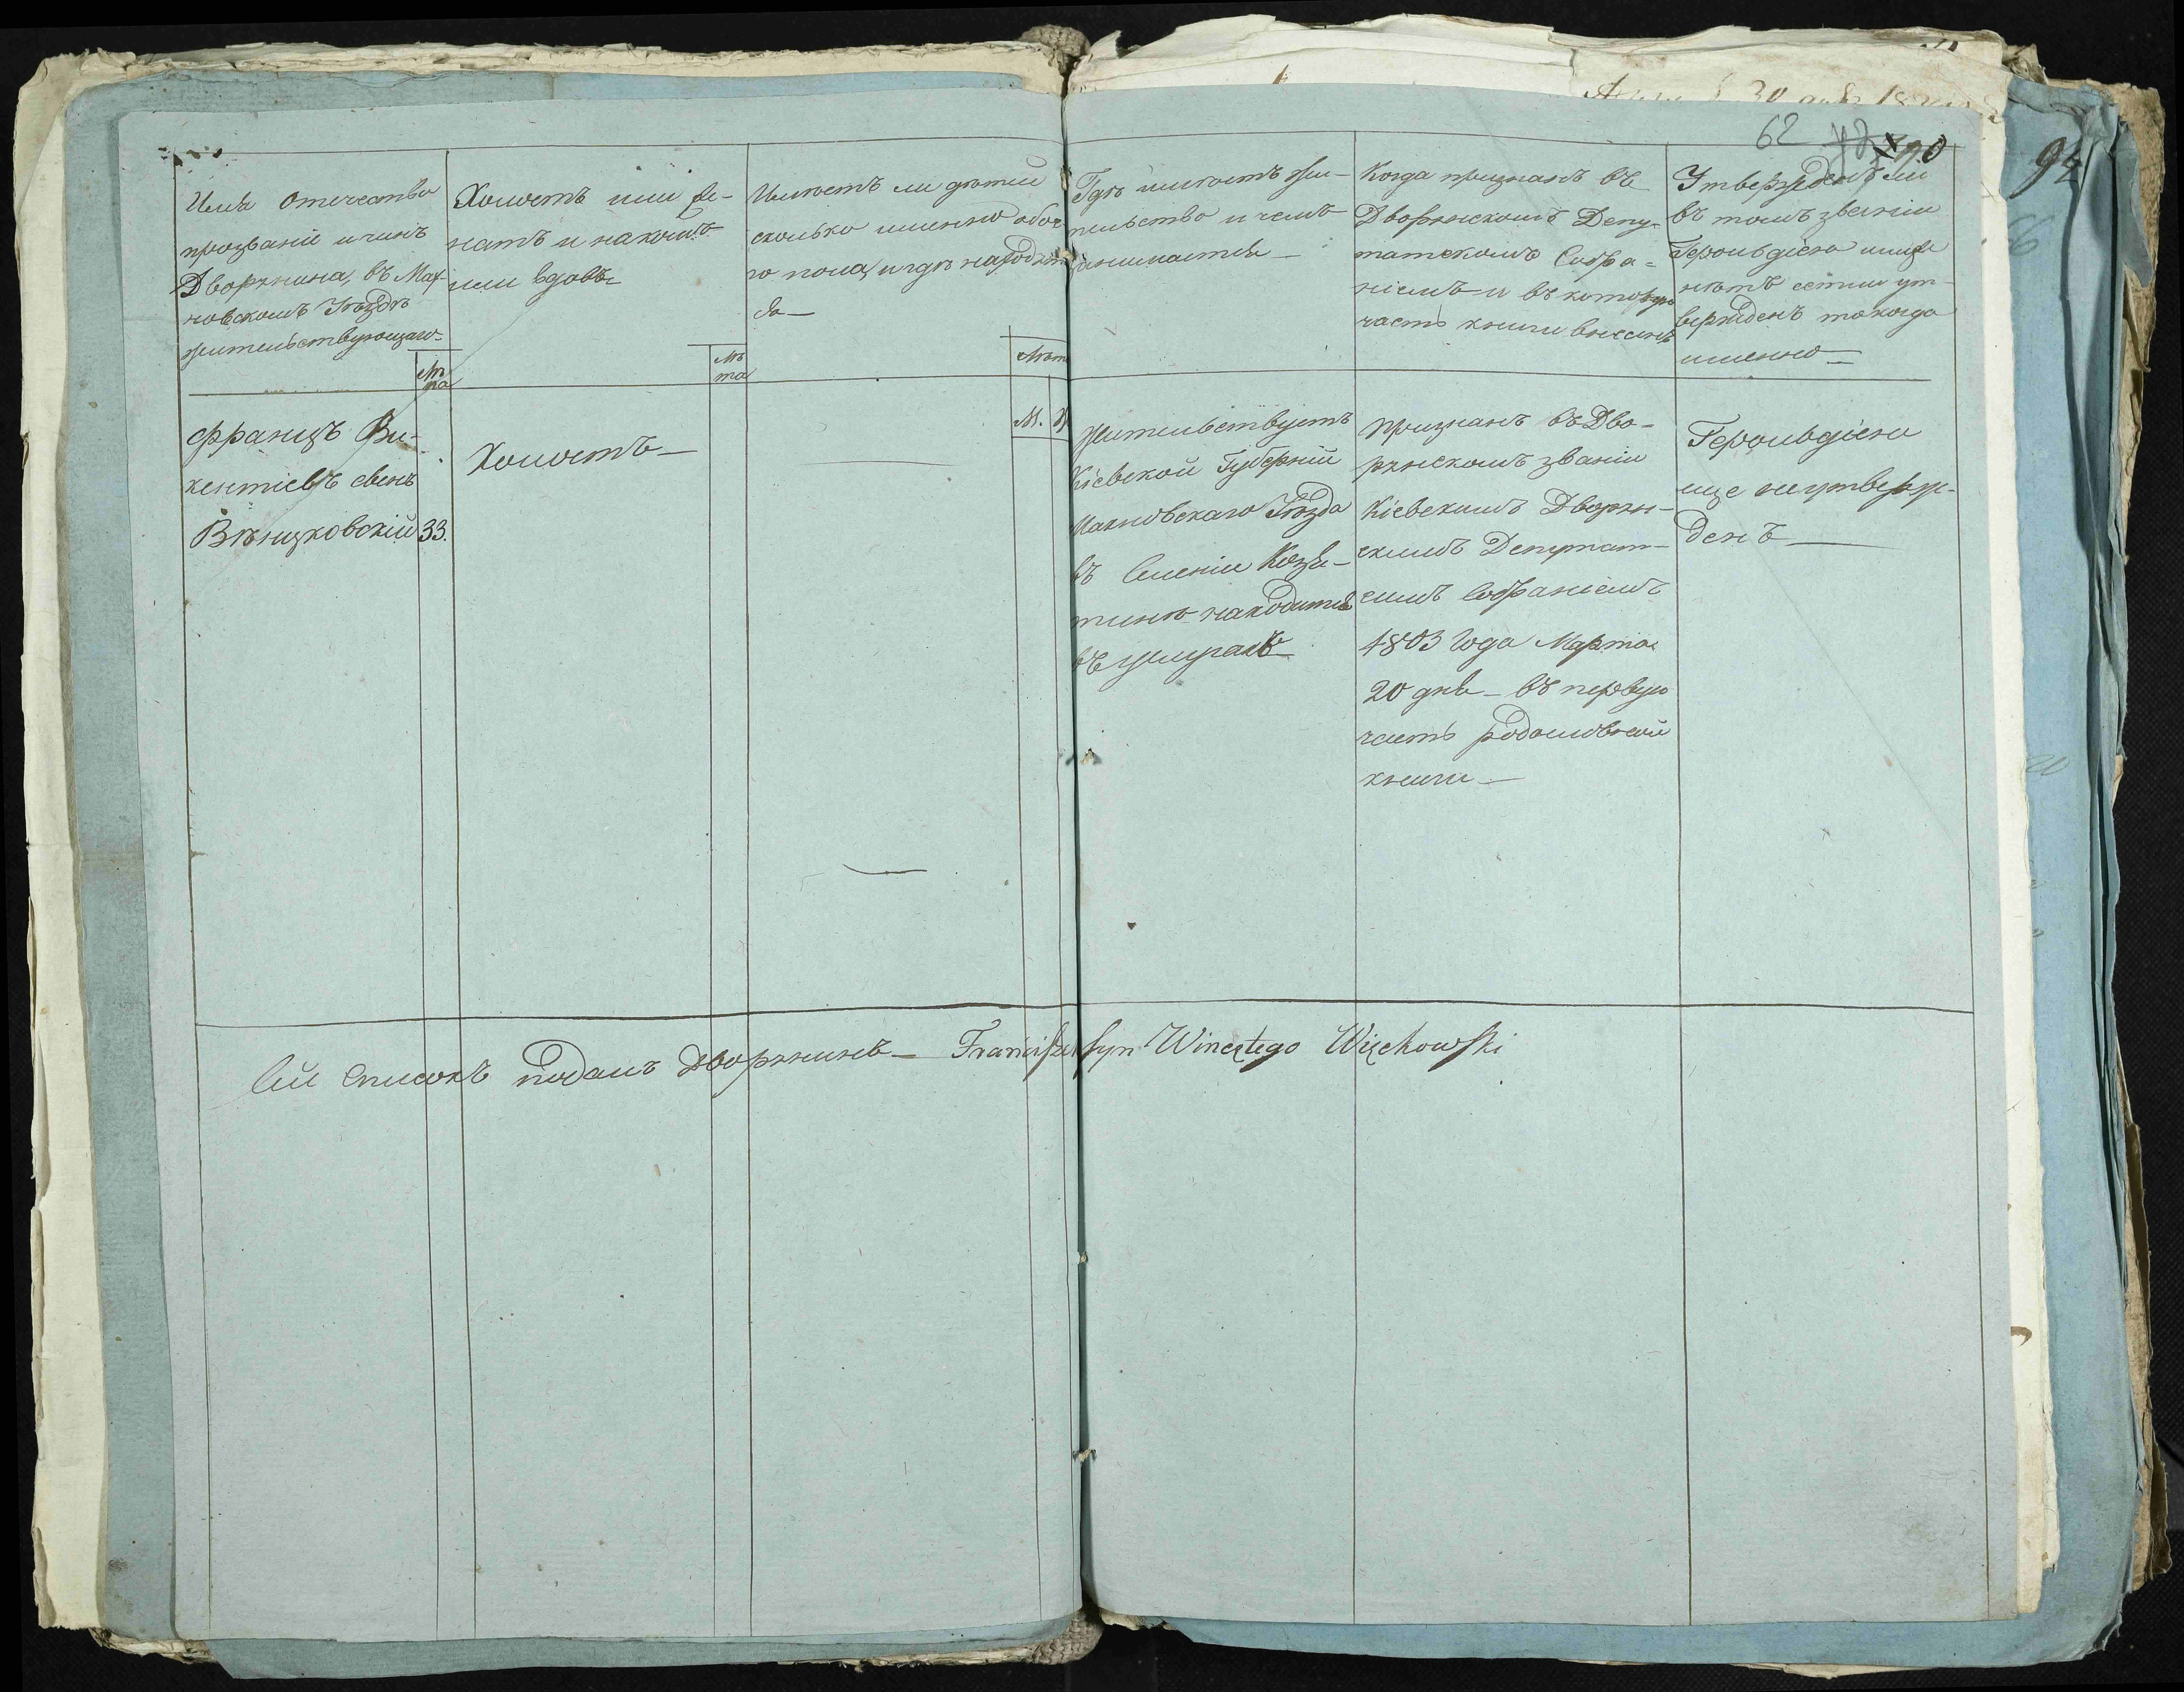 62 90
94
Имя Отечество
прозваніе и чинъ
Дворянина, въ Мах-
новскомъ Уездѣ
жительствующаго
Лѣ
та
Холостъ или же-
натъ и на комъ
или вдовъ
Лѣ
та
Имѣетъ ли дѣтей
сколько именно обое
го пола, и гдѣ находят
ся
Лѣта
М.
Гдѣ имѣетъ жи-
тельство и чемъ
занимается
Когда признанъ въ
Дворянскомъ Депу-
татскомъ Собра-
ніемъ и въ которую
часть книги внесенъ
Утвержденъ ли
въ томъ званіи
Герольдіею или
нѣтъ естли ут-
вержденъ то когда
именно
Францъ Ви-
кентіевъ сынъ
Вѣнцковскій 33.
Холостъ
Жительствуетъ
Кіевской Губерніи
Махновскаго Уезда
въ Селеніи Козя-
тинѣ находится
въ
Признанъ въ Дво-
рянскомъ званіи
Кіевскимъ Дворян-
скимъ Депутат-
симъ Собраніемъ
1803 Года Марта
20 дня въ первую
часть родословной
книги
Герольдіею
еще неутверж-
денъ
Сей Списокъ подалъ Дворянинъ Franciszek syn Winceętego Więckowski